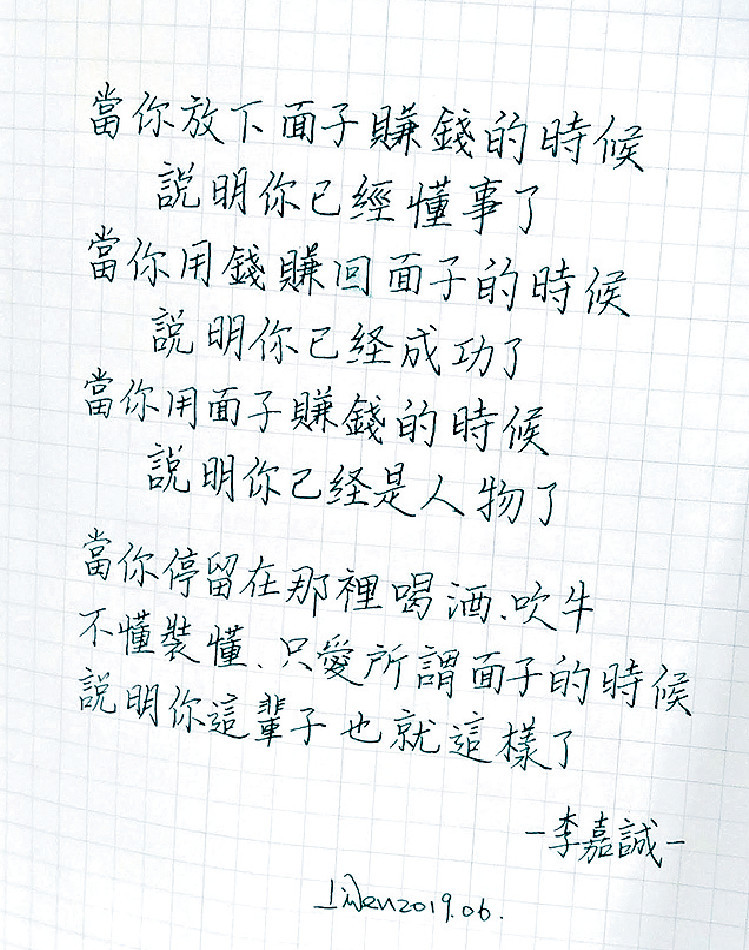 當你放下面子賺錢的時候
說明你已經懂事了
當你用錢賺回面子的時候
說明你已経成功了
當你用面子賺錢的時候
說明你已経是人物了
當你停留在那裡喝酒、吹牛
不懂裝懂、只愛所謂面子的時候
說明你這輩子也就這樣了
-李嘉誠-
2019.06.